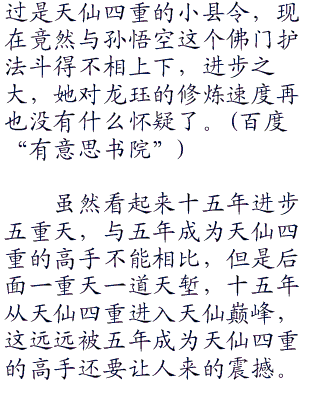 过是天仙四重的小县令，现
在竟然与孙悟空这个佛门护
法斗得不相上下，进步之
大，她对龙珏的修炼速度再
也没有什么怀疑了。(百度
“有意思书院”)
虽然看起来十五年进步
五重天，与五年成为天仙四
重的高手不能相比，但是后
面一重天一道天堑，十五年
从天仙四重进入天仙巅峰，
这远远被五年成为天仙四重
的高手还要让人来的震撼。